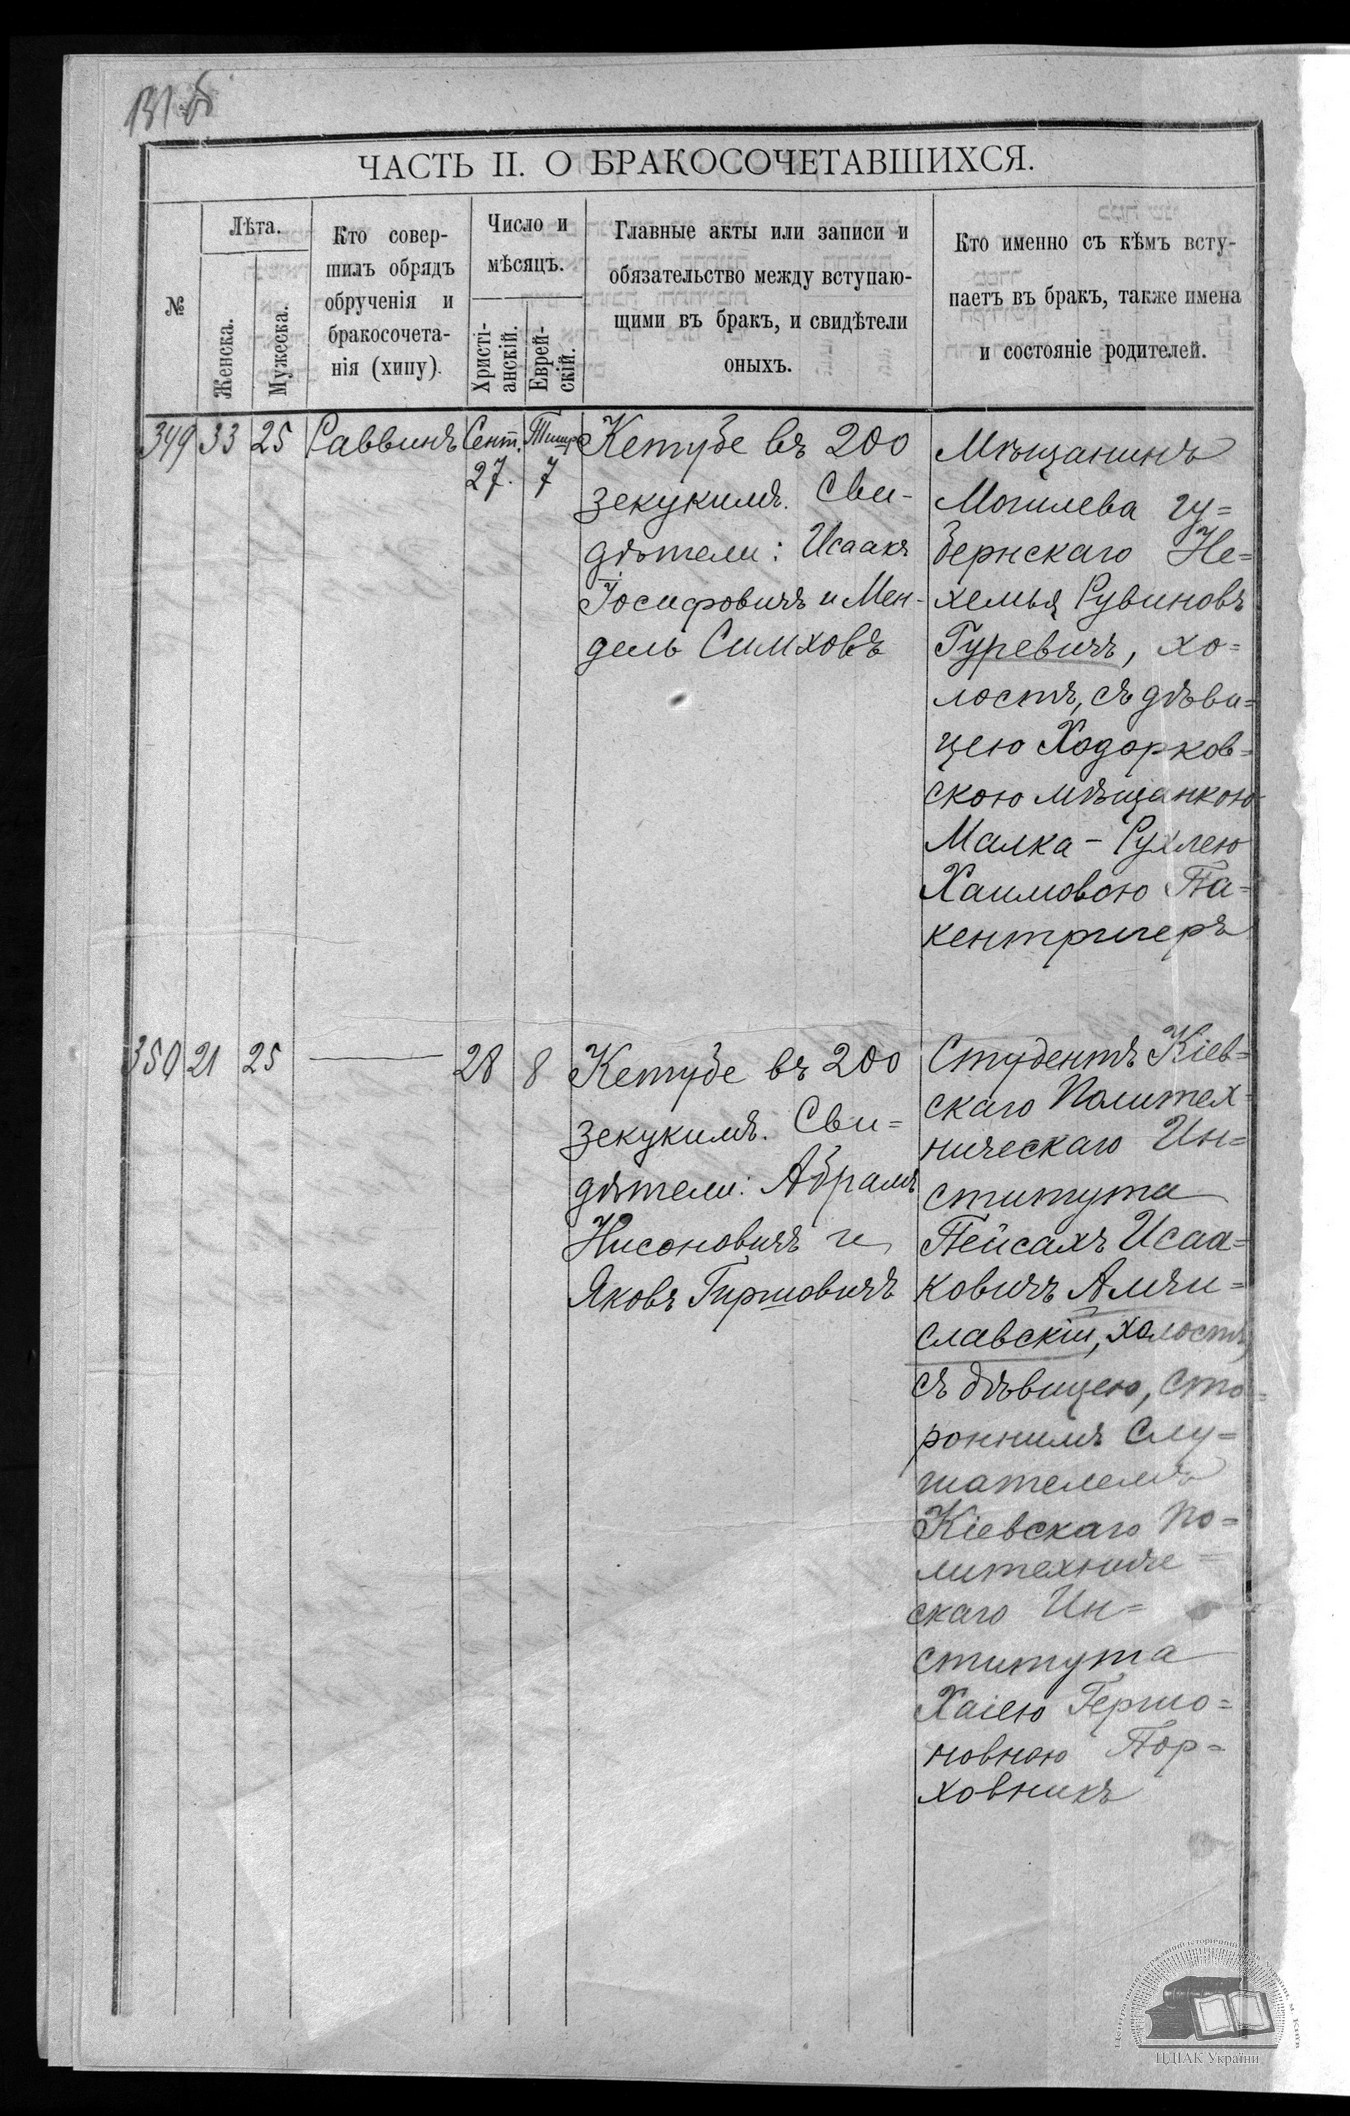 ЧАСТЬ II. О БРАКОСОЧЕТАВШИХСЯ.
№
Лѣта.
Женска.
Мужеска.
Кто совер-
шилъ обрядъ
обрученія и
бракосочета-
нія (хипу).
Число и
мѣсяцъ.
Христі-
анскій.
Еврей-
скій.
Главные акты или записи и
обязательство между вступаю-
щими въ бракъ, и свидѣтели
оныхъ.
Кто именно съ кѣмъ всту-
паетъ въ бракъ, также имена
и состояніе родителей.
349 33 25 Раввинъ Сент. Тишр
27. 7
Кетубе въ 200
зекукимъ. Сви-
дѣтели: Исаакъ
Іосифовичъ и Мен-
дель Симховъ
Мѣщанинъ
Могилева гу=
бернскаго Не=
хемья Рувиновъ
Гуревичъ, хо=
лостъ, съ дѣви=
цею Ходорков=
скою мѣщанкою
Малка-Рухлею
Хаимовою Па=
кентригеръ
350 21 25 — 28 8
Кетубе въ 200
зекукимъ. Сви=
дѣтели: Абрамъ
Нисоновичъ и
Яковъ Гиршовичъ
Студентъ Кіев=
скаго Политех=
ническаго Ин=
ститута
Пейсахъ Исаа=
ковичъ Амчи=
славскій, холостъ,
съ дѣвицею, сто=
роннимъ слу=
шателемъ
Кіевскаго По=
литехниче=
скаго Ин=
ститута
Хаіею Гершо=
новною Пор=
ховникъ
ЦДІАК України